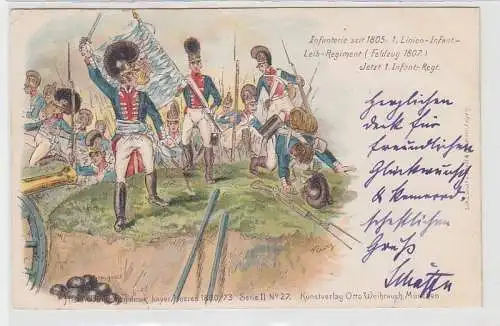 Infanterie seit 1805. 1. Linien-Infant.-
Leib-Regiment (Feldzug 1807.)
Jetzt 1. Infant.-Regt.
Herzlichen
Dank für
freundlichen
Glückwunsch
& kamerad
schaftlichen
Gruß
bayer. Heeres 1800/73 Serie II No 27. Kunstverlag Otto Weihrauch, München